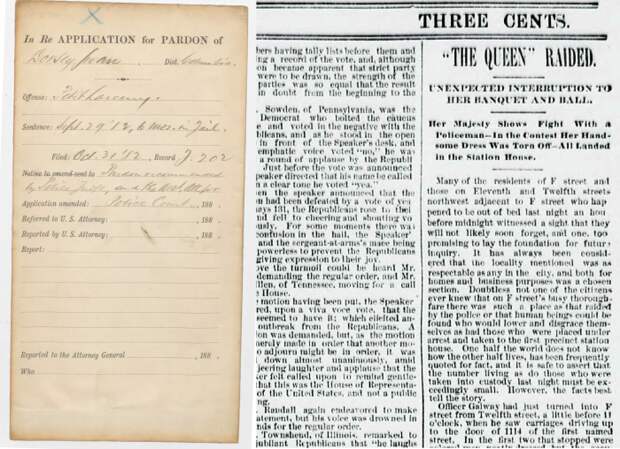 In Re APPLICATION for PARDON of
Dist. Columbia
Offense: Petit Larceny.
Sentence: Sept. 29 '82, 6 mos. in Jail.
Filed: Oct. 20 '82 Record J. 202
Application amended: Police Court, 188 .
Referred to U. S. Attorney: , 188 .
Reported by U. S. Attorney: , 188 .
Report:
Reported to the Attorney General , 188 .
Who
bers having tally lists before them and
ng a record of the vote, and, although
on became apparent that strict party
were to be drawn, the strength of the
parties was so equal that the result
in doubt from the beginning to the
Sowden, of Pennsylvania, was the
Democrat who bolted the caucus
e and voted in the negative with the
blicans, and as he stood in the open
in front of the Speaker's desk, and
emphatic voice voted "no," he was
a round of applause by the Republi
Just before the vote was announced
peaker directed that his name be called
n a clear tone he voted "yea."
en the speaker announced that the
n had been defeated by a vote of yes
ays 131, the Republicans rose to thei
nd fell to cheering and shouting vo
usly. For some moments there wa
confusion in the hall, the Speaker'
and the sergeant-at-arm's mace being
powerless to prevent the Republicans
giving expression to their joy.
ove the turmoil could be heard Mr.
demanding the regular order, and Mr.
llen, of Tennessee, moving for a call
e House.
motion having been put, the Speaker
red, upon a viva voce vote, that the
seemed to have it; which elicited an-
outbreak from the Republicans. A
on was demanded, but, as the motion
merely made in order that another mo-
o adjourn might be in order, it was
down almost unanimously, amid
jeering laughter and applause that the
er felt called upon to remind gentle-
that this was the House of Representa-
of the United States, and not a public
ng.
Randall again endeavored to make
atement, but his voice was drowned in
nds for the regular order.
Townshend, of Illinois, remarked to
jubilant Republicans that "he laughs
THREE CENTS.
"THE QUEEN" RAIDED.
UNEXPECTED INTERRUPTION TO
HER BANQUET AND BALL.
Her Majesty Shows Fight With a
Policeman—In the Contest Her Hand-
some Dress Was Torn Off—All Landed
in the Station House.
Many of the residents of F street and
those on Eleventh and Twelfth streets
northwest adjacent to F street who hap-
pened to be out of bed last night an hou
before midnight witnessed a sight that they
will not likely soon forget, and one, too
promising to lay the foundation for future
inquiry. It has always been consid-
ered that the locality mentioned was as
respectable as any in the city, and both for
homes and business purposes was a chosen
section. Doubtless not one of the citizens
ever knew that on F street's busy thorough-
fare there was such a place as that raided
by the police or that human beings could be
found who would lower and disgrace them-
selves as had those who were placed under
arrest and taken to the first precinct station
house. One half the world does not know
how the other half lives, has been frequently
quoted for fact, and it is safe to assert that
the number living as do those who were
taken into custody last night must be ex-
ceedingly small. However, the facts best
tell the story.
Officer Galway had just turned into F
street from Twelfth street, a little before 11
o'clock, when he saw carriages driving up
to the door of 1114 of the first named
street. In the first two that stopped were